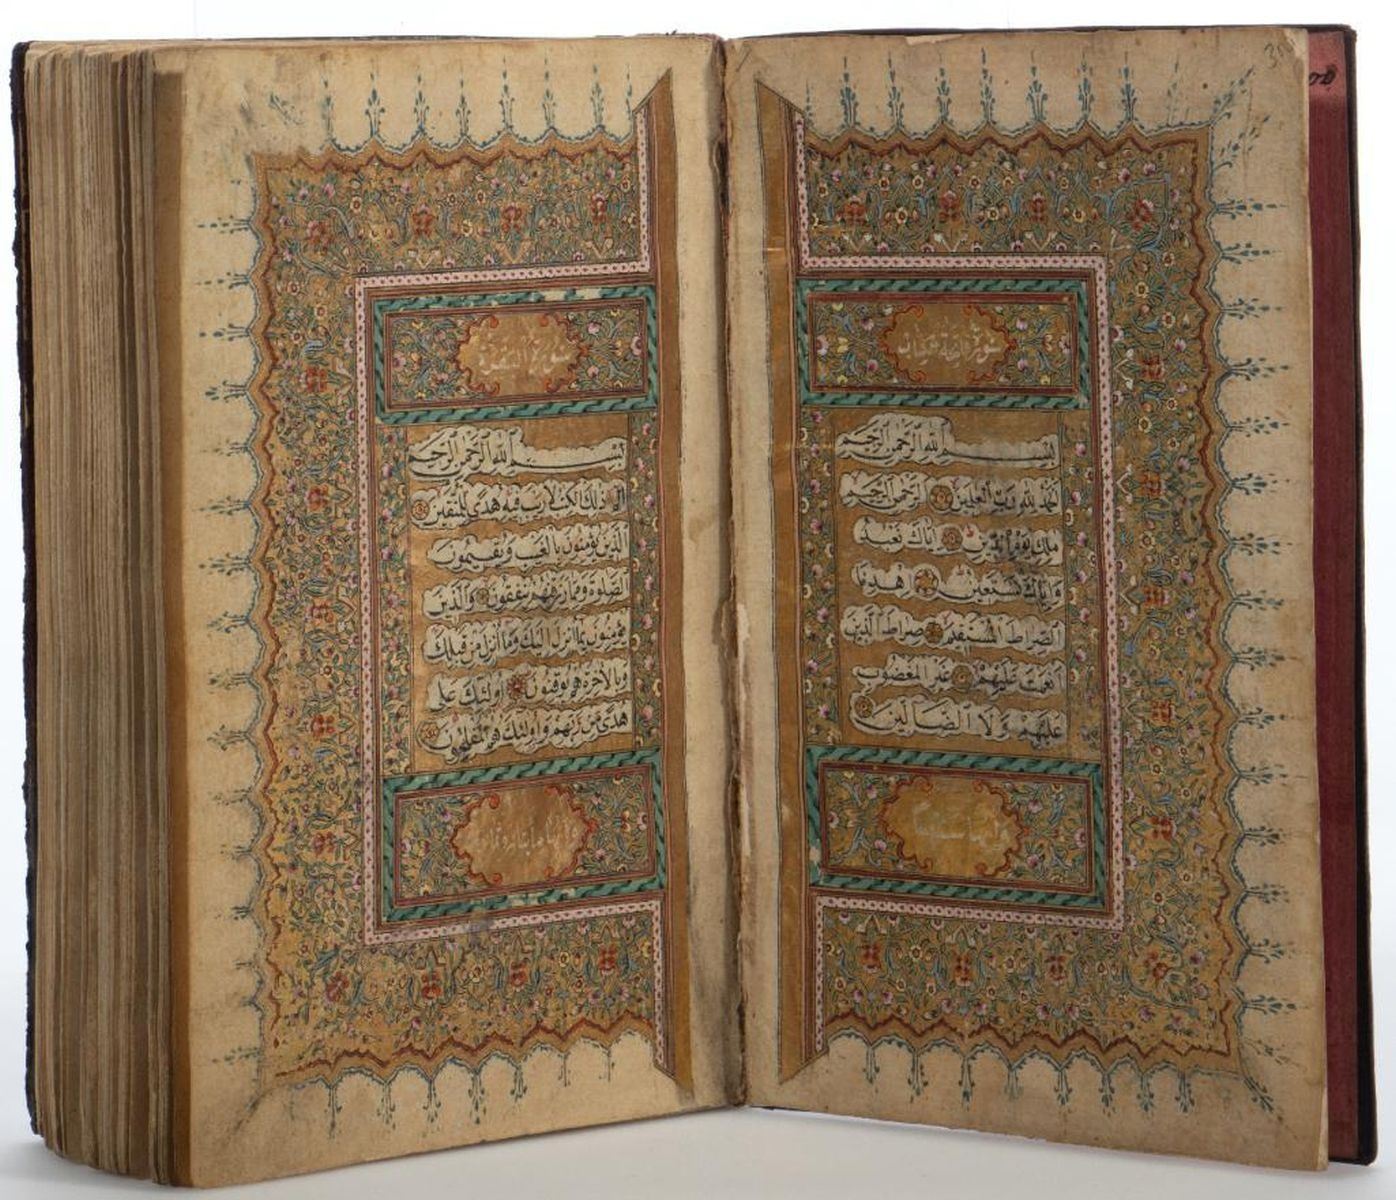 سورة فاتحة الكتاب
بسم الله الرحمن الرحيم
الحمد لله رب العلمين الرحمن الرحيم
ملك يوم الدين اياك نعبد
واياك نستعين اهدنا
الصراط المستقيم صراط الذين
انعمت عليهم غير المغضوب
عليهم ولا الضالين
سورة البقرة
بسم الله الرحمن الرحيم
الم ذلك الكتب لا ريب فيه هدى للمتقين
الذين يؤمنون بالغيب ويقيمون
الصلوة ومما رزقنهم ينفقون والذين
يؤمنون بما انزل اليك وما انزل من قبلك
وبالاخرة هم يوقنون اولئك على
هدى من ربهم واولئك هم المفلحون